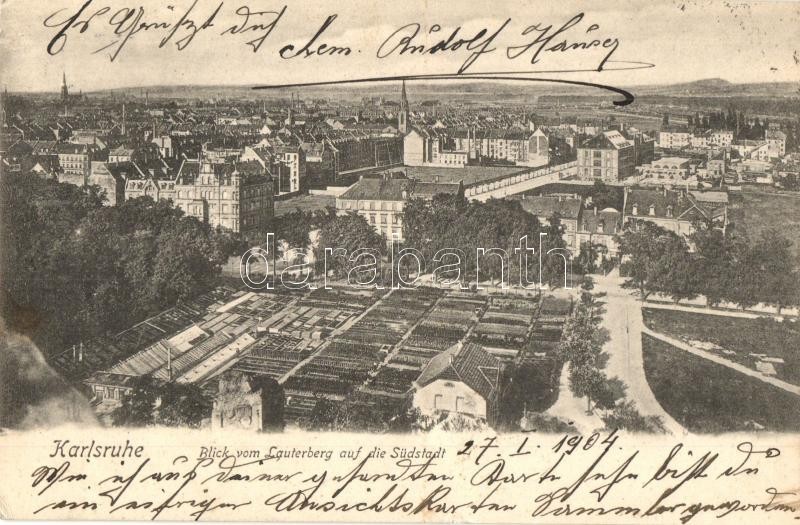 Es Grüszt dich
chem. Rudolf Hauser
darabanth
Karlsruhe
Blick vom Lauterberg auf die Südstadt
27. I. 1904
Wie ich auf deiner gesandten Karte sehe bist du
ein eifriger Ansichtskarten Sammler geworden.